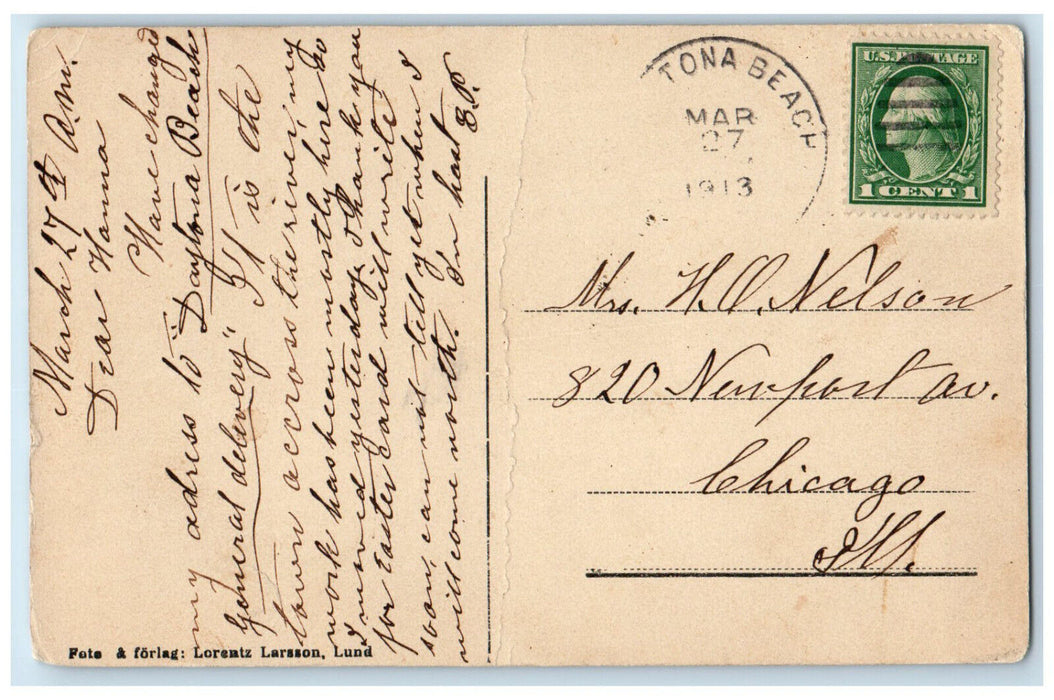 March 27th A.M.
Dear Hanna
Have changed
my adress to "Daytona Beach
General delevery" It is the
town across the river, my
work has been mostly here so
I moved yesterday. Thank you
for Easter card will write
soon, can not tell yet when I
will come north. In hast S.P.
Foto & förlag: Lorentz Larsson, Lund
TONA BEACH
MAR
27
1913
U.S. POSTAGE
1 CENT 1
Mrs. H.O. Nelson
820 Newport av.
Chicago
Ill.